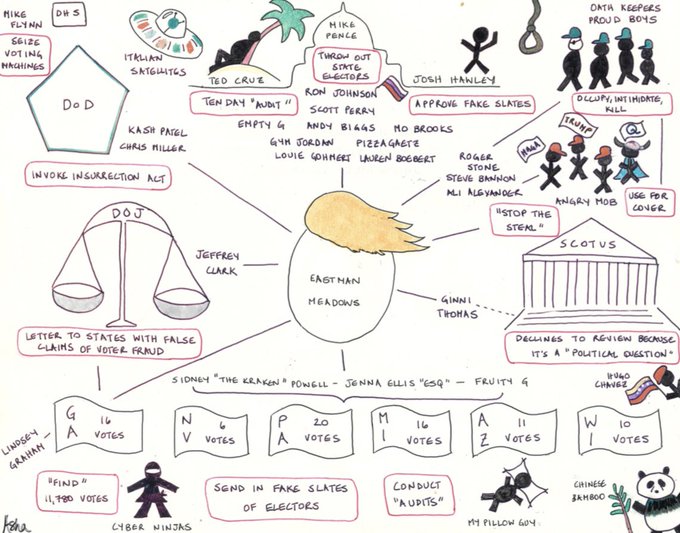 MIKE
FLYNN
DHS
SEIZE
VOTING
MACHINES
ITALIAN
SATELLITES
TED CRUZ
MIKE
PENCE
THROW OUT
STATE
ELECTORS
JOSH HAWLEY
OATH KEEPERS
PROUD BOYS
DOD
TEN DAY "AUDIT"
RON JOHNSON
SCOTT PERRY
APPROVE FAKE SLATES
OCCUPY, INTIMIDATE,
KILL
KASH PATEL
CHRIS MILLER
EMPTY G ANDY BIGGS MO BROOKS
GYM JORDAN PIZZAGAETZ
LOUIE GOHMERT LAUREN BOEBERT
MAGA
TRUMP
Q
INVOKE INSURRECTION ACT
ROGER
STONE
STEVE BANNON
ALI ALEXANDER
ANGRY MOB
USE FOR
COVER
"STOP THE
STEAL"
DOJ
JEFFREY
CLARK
EASTMAN
MEADOWS
GINNI
THOMAS
SCOTUS
LETTER TO STATES WITH FALSE
CLAIMS OF VOTER FRAUD
DECLINES TO REVIEW BECAUSE
IT'S A "POLITICAL QUESTION"
SIDNEY "THE KRAKEN" POWELL - JENNA ELLIS "ESQ" - FRUITY G
HUGO
CHAVEZ
LINDSEY
GRAHAM
G 16
A VOTES
N 6
V VOTES
P 20
A VOTES
M 16
I VOTES
A 11
Z VOTES
W 10
I VOTES
"FIND"
11,780 VOTES
CYBER NINJAS
SEND IN FAKE SLATES
OF ELECTORS
CONDUCT
"AUDITS"
MY PILLOW GUY
CHINESE
BAMBOO
Asha